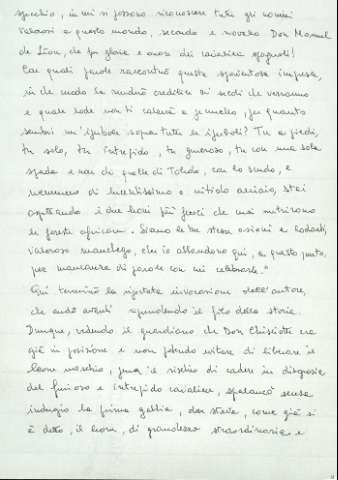 specchio, in cui si possono riconoscere tutti gli uomini
valorosi di questo mondo, secondo e novello Don Manuel
de Léon, che fu gloria e onore dei cavalieri spagnoli!
Con quali parole racconterò questa spaventosa impresa,
in che modo la renderò credibile ai secoli che verranno
e quale lode non ti calzerà a pennello, per quanto
sembri un'iperbole sopra tutte le iperboli? Tu a piedi,
tu solo, tu intrepido, tu generoso, tu con una sola
spada e non di quelle di Toledo, con lo scudo, e
nemmeno di lucentissimo e nitido acciaio, stai
aspettando i due leoni più feroci che mai nutrirono
le foreste africane. Siano le tue stesse azioni a lodarti,
valoroso manchego, ch'io abbandono qui, a questo punto,
per mancanza di parole con cui celebrarle."
Qui terminò la riportata invocazione dell'autore,
che andò avanti riprendendo il filo della storia.
Dunque, vedendo il guardiano che Don Chisciotte era
già in posizione e non potendo evitare di liberare il
leone maschio, pena il rischio di cadere in disgrazia
del furioso e intrepido cavaliere, spalancò senza
indugio la prima gabbia, dove stava, come già si
è detto, il leone, di grandezza straordinaria e